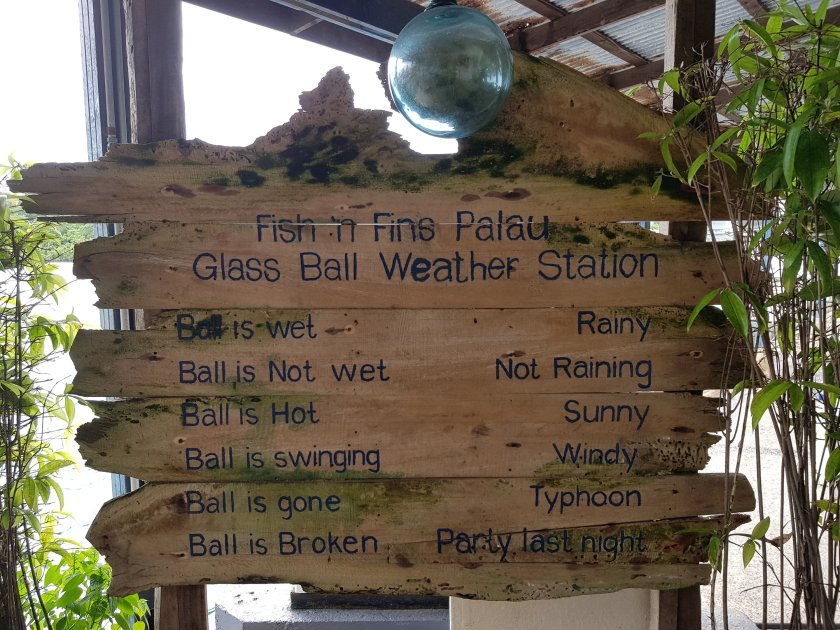 Fish 'n Fins Palau
Glass Ball Weather Station
Ball is wet Rainy
Ball is Not wet Not Raining
Ball is Hot Sunny
Ball is swinging Windy
Ball is gone Typhoon
Ball is Broken Party last night